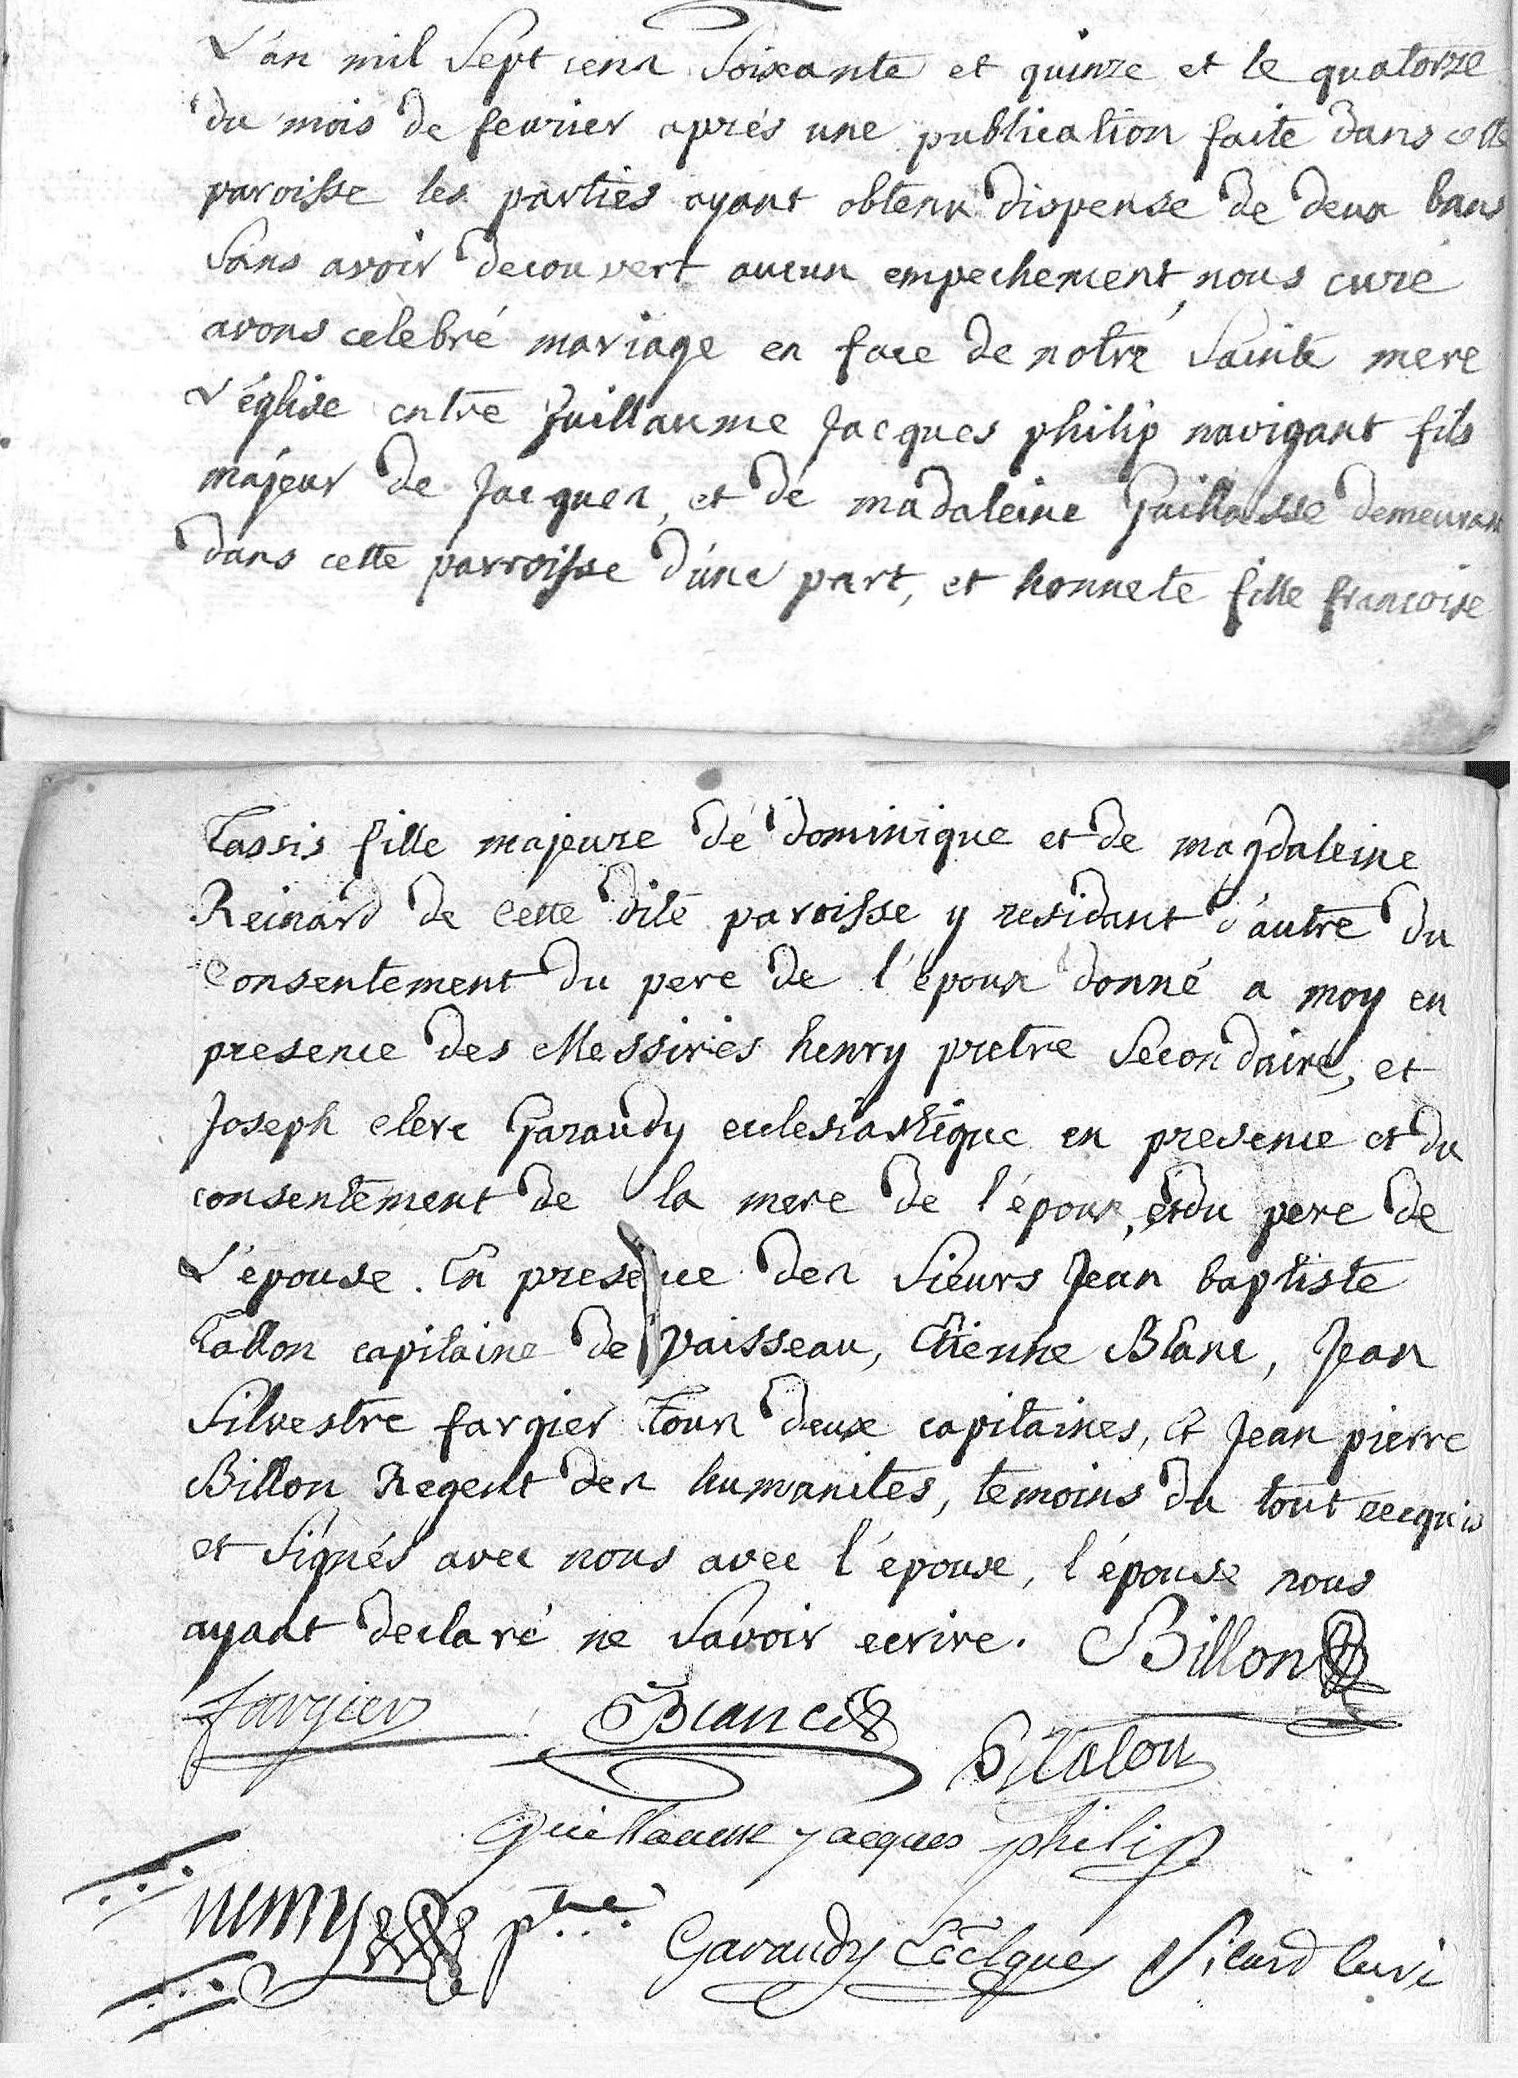 L'an mil Sept cent Soixante et quinze et le quatorze
du mois de fevrier aprés une publication faite dans cette
paroisse les parties ayant obtenu dispense de deux bans
Sans avoir decouvert aucun empechement, nous curé
avons celebré mariage en face de notre Sainte mere
L'église entre Guillaume Jacques philip navigant fils
majeur de Jacques, et de madaleine Gaillasse demeurant
dans cette parroisse d'une part, et honnete fille francoise
Tassis fille majeure de dominique et de magdaleine
Reinard de cette dite paroisse y residant d'autre du
Consentement du pere de l'epoux donné a moy en
presence des Messires henry pretre Secondaire, et
Joseph clerc Garaudy eclesiastique en presence et du
consentement de la mere de l'époux, et du pere de
L'épouse. En presence des Sieurs Jean baptiste
Tallon capitaine de vaisseau, Etienne Blanc, Jean
Silvestre fargier tous deux capitaines, et Jean pierre
Billon Regent des humanites, temoins du tout recquis
et Signés avec nous avec l'epoux, l'épouse nous
ayant declaré ne Savoir ecrire. Billon
fargier Blanc Talon
guillaume jacques philip
henry ptre Garaudy Eccl Sicard Curé